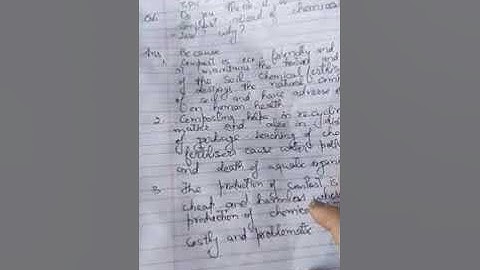 Do you think it
compost instead of chemical
why?
Ans Because
1. Compost is eco friendly and
it maintains the texture and
of the soil. Chemical fertili
destroys the natural
of soil and have adverse
on human health
2. Composting helps in recycling
matter and also in
of garbage. leaching of che
fertiliser cause water poll
and death of aquatic organi
3. The production of compost is
cheap and harmless while
production of chemic
costly and problematic